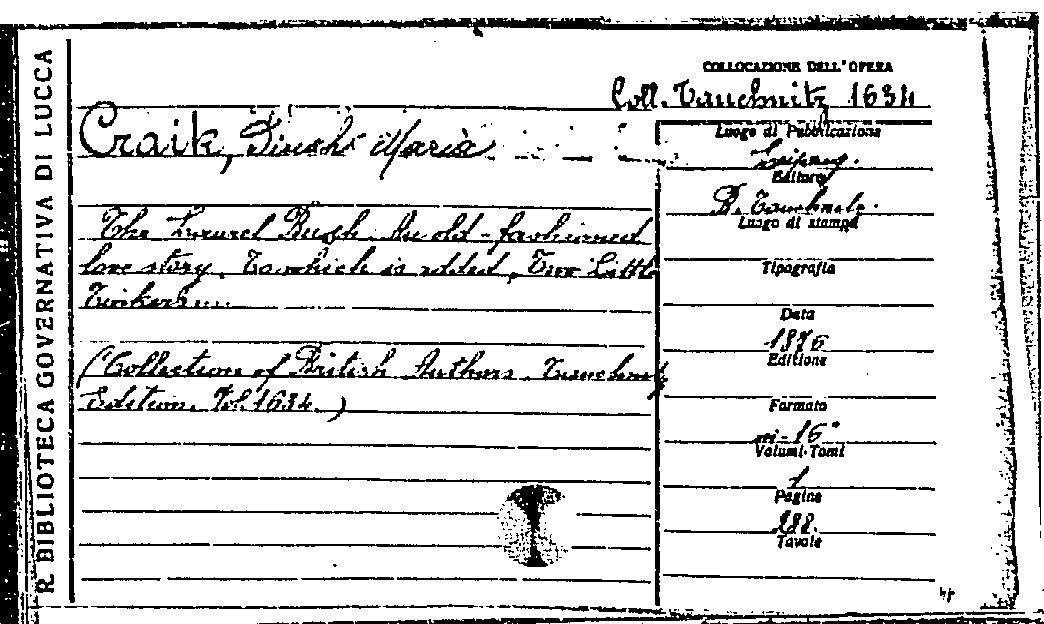 R. BIBLIOTECA GOVERNATIVA DI LUCCA
COLLOCAZIONE DELL'OPERA
Coll. Tauchnitz 1634
Craik, Maria
Luogo di Pubblicazione
Leipzig.
Editore
B. Tauchnitz.
Luogo di stampa
The Laurel Bush. An old-fashioned
love story. To which is added, Two Little
Tinkers...
Tipografia
Data
1876
Edizione
(Collection of British Authors. Tauchnitz
Edition. Vol. 1634.)
Formato
in-16°
Volumi-Tomi
1
Pagine
288.
Tavole